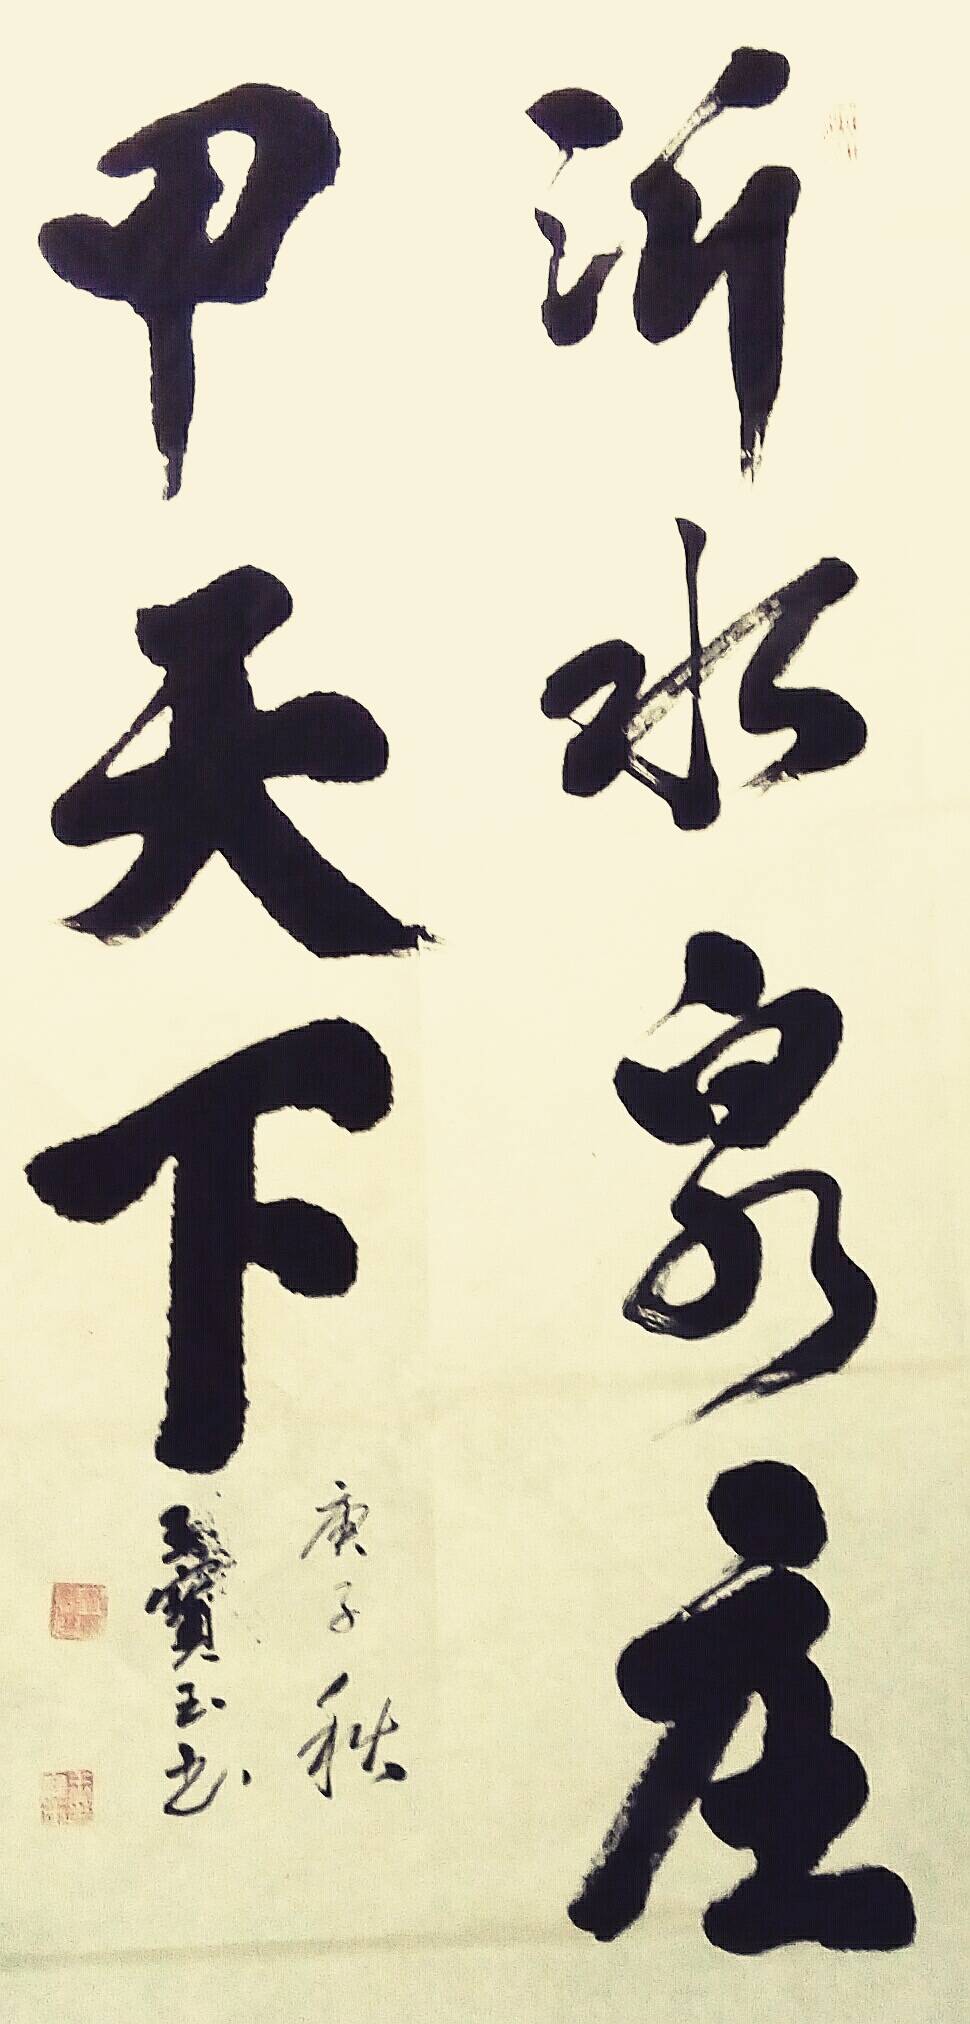 沂水泉庄
甲天下
庚子秋
寶玉书